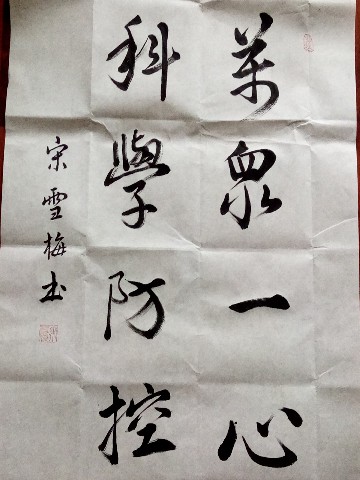 萬眾一心
科學防控
宋雪梅书